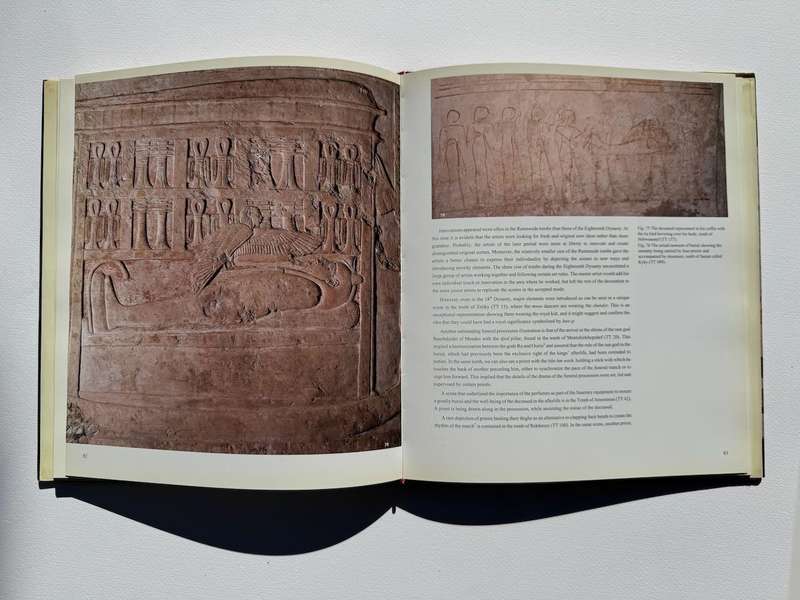 Innovations appeared more often in the Ramesside tombs than those of the Eighteenth Dynasty. At
this time it is evident that the artists were looking for fresh and original new ideas rather than sheer
grandeur. Probably, the artists of the later period were more at liberty to innovate and create
distinguished original scenes. Moreover, the relatively smaller size of the Ramesside tombs gave the
artists a better chance to express their individuality by depicting the scenes in new ways and
introducing novelty elements. The sheer size of tombs during the Eighteenth Dynasty necessitated a
large group of artists working together and following certain set rules. The master artist would add his
own individual touch or innovation in the area where he worked, but left the rest of the decoration to
the more junior artists to replicate the scenes in the accepted mode.
However, even in the 18th Dynasty, major elements were introduced as can be seen in a unique
scene in the tomb of (TT 15), where the muu dancers are wearing the This is an
exceptional representation showing them wearing the royal kilt, and it might suggest and confirm the
idea that they could have had a royal significance symbolised by
Another outstanding funeral procession illustration is that of the arrival at the shrine of the ram god
of Mendes with the djed pillar, found in the tomb of (TT 20). This
implied a harmonization between the gods Ra and Osiris and assured that the role of the sun god in the
burial, which had previously been the exclusive right of the kings' afterlife, had been extended to
nobles. In the same tomb, we can also see a priest with the title holding a stick with which he
touches the back of another preceding him, either to synchronize the pace of the funeral march or to
urge him forward. This implied that the details of the drama of the funeral procession were set, led and
supervised by certain priests.
A scene that underlined the importance of the perfumes as part of the funerary equipment to ensure
a goodly burial and the well-being of the deceased in the afterlife is in the Tomb of (TT 41).
A priest is being drawn along in the procession, while anointing the statue of the deceased.
A rare depiction of priests beating their thighs as an alternative to clapping their hands to create the
'rhythm of the march' is contained in the tomb of (TT 100). In the same scene, another priest,
Fig. 77 The deceased represented in his coffin with
the ba bird hovering over his body, tomb of
(TT 157).
Fig. 78 The actual moment of burial showing the
mummy being carried by four priests and
accompanied by mourners, tomb of called
Kyky (TT 409).
78
82
83